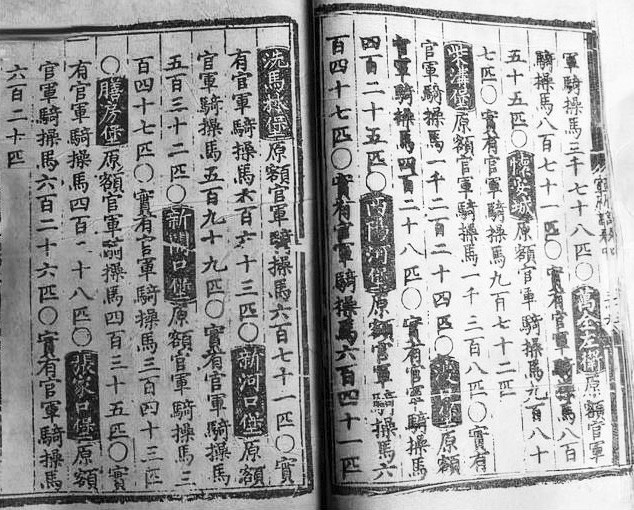 軍騎操馬三千七十八匹○萬全左衛原額官軍
騎操馬八百七十一匹○實有官軍騎操馬八百
五十五匹○懷安城原額官軍騎操馬九百八十
七匹○實有官軍騎操馬九百七十二匹
柴溝堡原額官軍騎操馬一千三百八匹○實有
官軍騎操馬一千二百二十四匹○渡口堡原額
官軍騎操馬四百二十八匹○實有官軍騎操馬
四百十匹○西陽河堡原額官軍騎操馬六
百四十七匹○實有官軍騎操馬六百四十一匹
洗馬林堡原額官軍騎操馬六百七十一匹○實
有官軍騎操馬六百六十三匹○新河口堡原額
官軍騎操馬五百九十九匹○實有官軍騎操馬
五百三十二匹○新開口堡原額官軍騎操馬三
百四十七匹○實有官軍騎操馬三百四十三匹
○膳房堡原額官軍騎操馬四百三十五匹○實
有官軍騎操馬四百十八匹○張家口堡原額
官軍騎操馬六百二十六匹○實有官軍騎操馬
六百二十匹